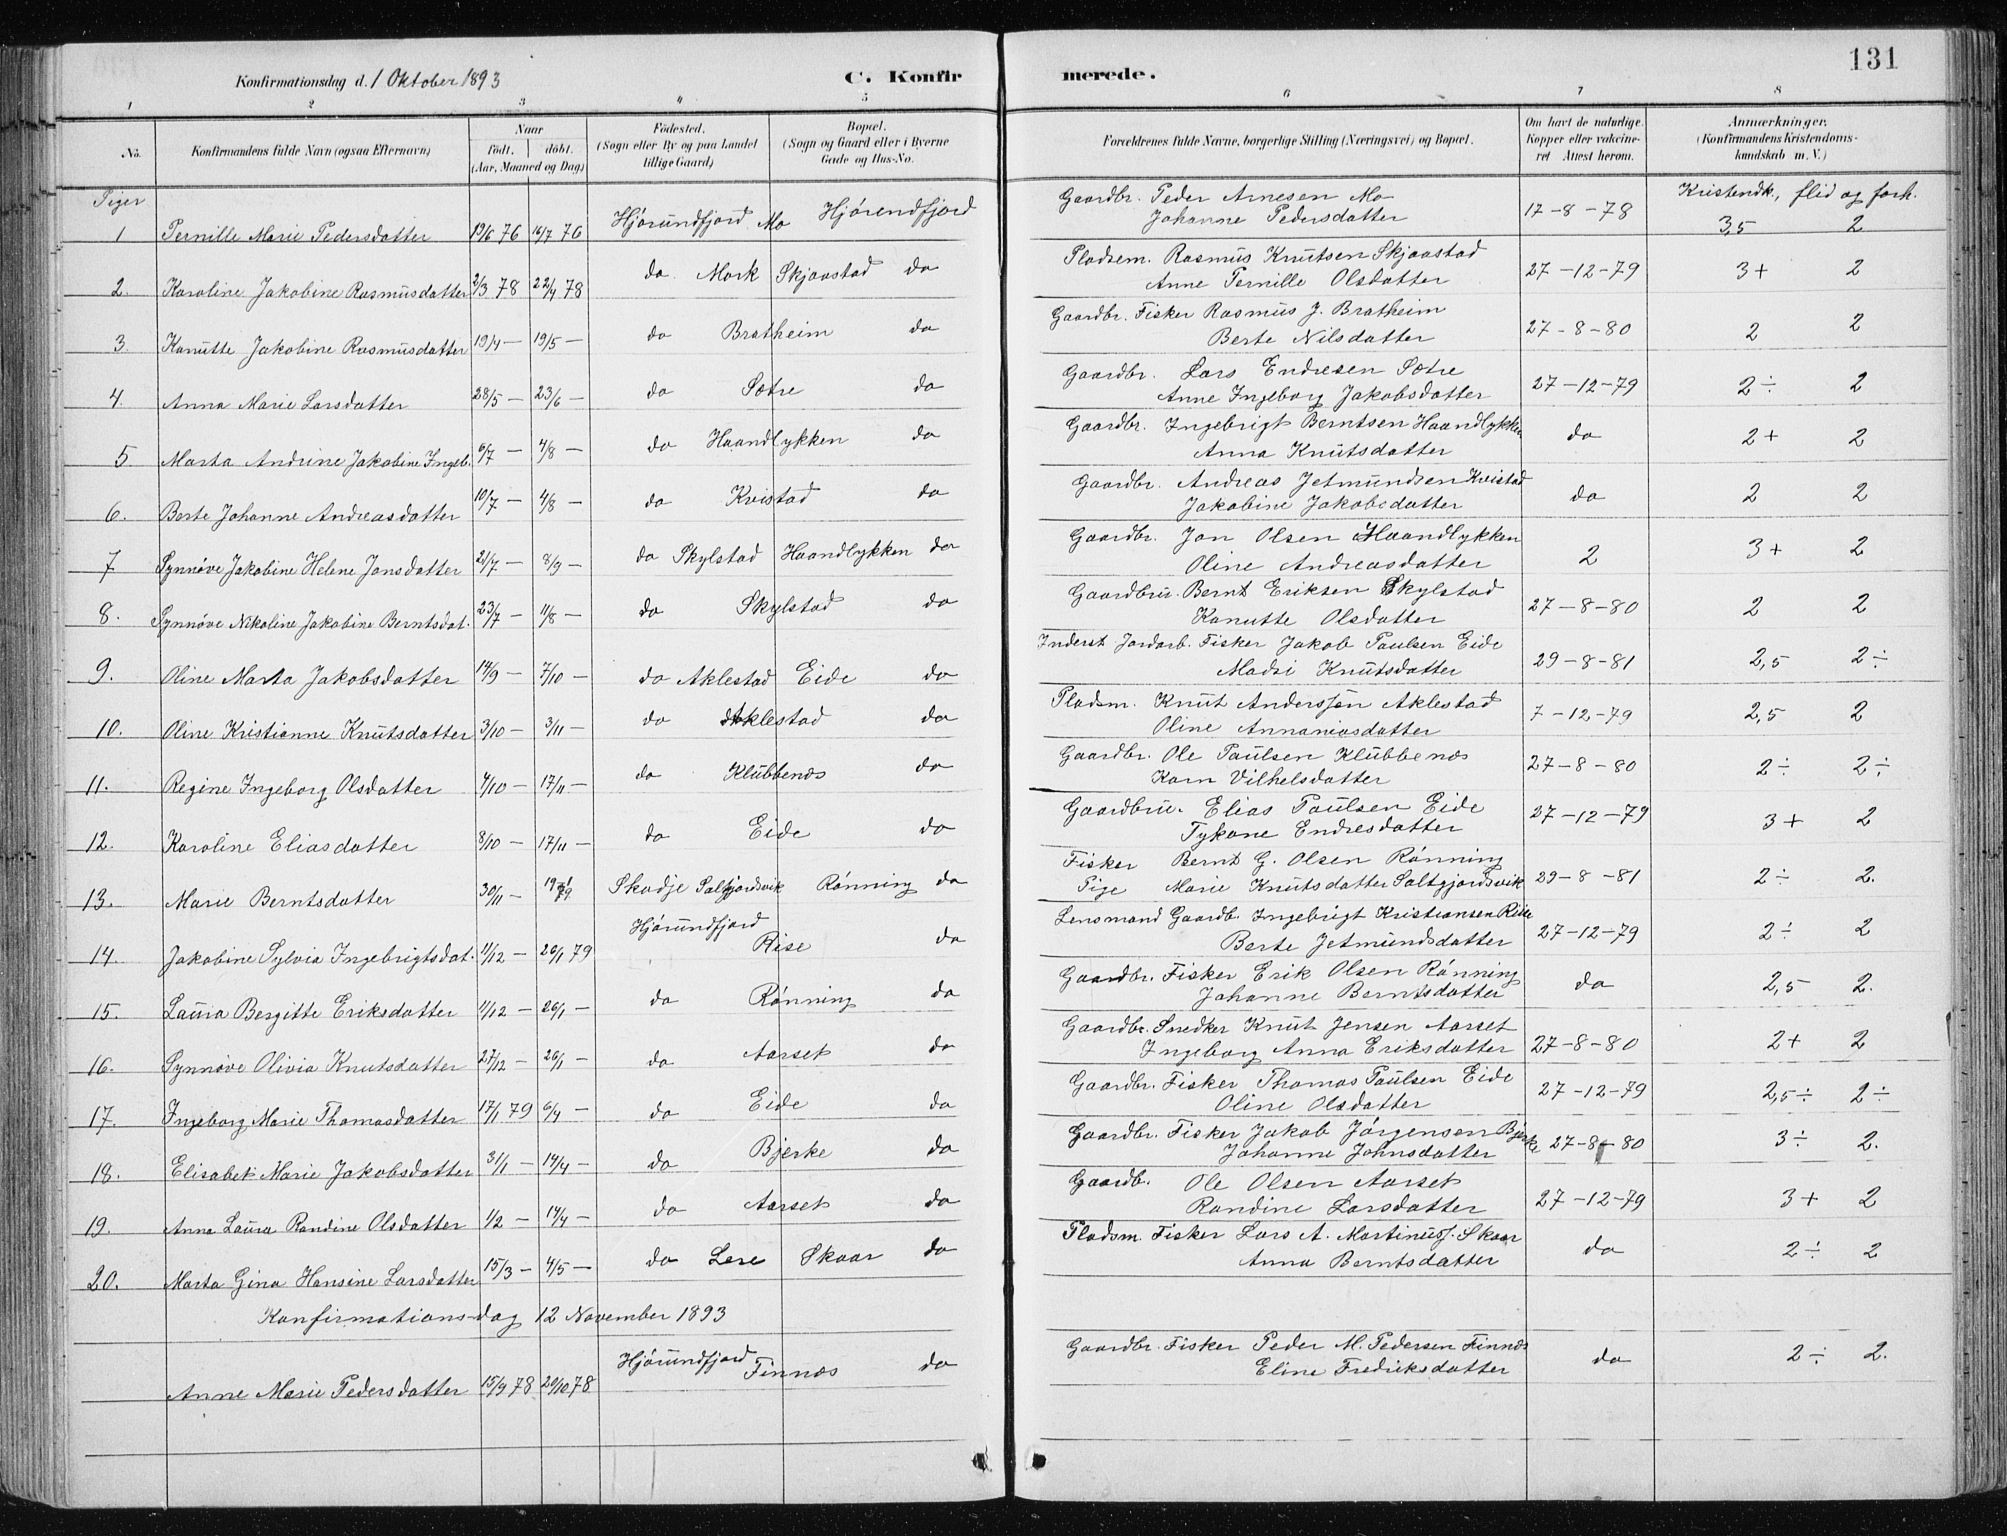 131
Konfirmationsdag d. 1 Oktober 1893 C. Konfirmerede.
1 2 3 4 5 6 7 8
No. Konfirmandens fulde Navn (ogsaa Efternavn) Naar født. døbt. (Aar, Maaned og Dag) Fødested. (Sogn eller By og paa Landet tillige Gaard) Bopæl. (Sogn og Gaard eller i Byerne Gade og Hus-No. Forældrenes fulde Navne, borgerlige Stilling (Næringsvei) og Bopæl. Om havt de naturlige Kopper eller vakcineret Attest herom. Anmærkninger. (Konfirmandens Kristendomskundskab m. V.)
Piger Kristendk., flid og forh.
1 Pernille Marie Pedersdatter 19/6 76 16/7 76 Hjørundfjord Mo Hjørendfjord Gaardbr. Peder Arnesen Mo 17-8-78 3,5 2
Johanne Pedersdatter
2. Karoline Jakobine Rasmusdatter 2/3 78 22/4 78 do Mork Skjaastad do Pladsem. Rasmus Knutsen Skjaastad 27-12-79 3+ 2
Anne Pernille Olsdatter
3 Kanutte Jakobine Rasmusdatter 19/4 — 19/5 — do Bratheim do Gaardbr. Fisker Rasmus J. Bratheim 27-8-80 2 2
Berte Nilsdatter
4. Anna Marie Larsdatter 28/5 — 23/6 — do Sætre do Gaardbr. Lars Endresen Sætre 27-12-79 2÷ 2
Anne Ingeborg Jakobsdatter
5 Marta Andrine Jakobine Ingeb. 6/7 — 4/8 — do Haandlykken do Gaardbr. Ingebrigt Berntsen Haandlykken do 2+ 2
Anna Knutsdatter
6. Berte Johanne Andreasdatter 10/7 — 4/8 — do Kvistad do Gaardbr. Andreas Jetmundsen Kvistad do 2 2
Jakobine Jakobsdatter
7 Synnøve Jakobine Helene Jonsdatter 21/7 — 8/9 — do Skylstad Haandlykken do Gaardbr. Jon Olsen Haandlykken 2 3+ 2
Oline Andreasdatter
8. Synnøve Nikoline Jakobine Berntsdat. 23/7 — 11/8 — do Skylstad do Gaardbru. Bernt Eriksen Skylstad 27-8-80 2 2
Kanutte Olsdatter
9. Oline Marta Jakobsdatter 14/9 — 7/10 — do Aklestad Eide do Inderst Jordarb. Fisker Jakob Paulsen Eide 29-8-81 2,5 2÷
Madsi Knutsdatter
10. Oline Kristianne Knutsdatter 3/10 — 3/11 — do Aklestad do Pladsm. Knut Anderssøn Aklestad 7-12-79 2,5 2
Oline Annaniasdatter
11. Regine Ingeborg Olsdatter 4/10 — 17/11 — do Klubbenæs do Gaardbr. Ole Paulsen Klubbenæs 27-8-80 2÷ 2÷
Karn Vilhelsdatter
12. Karoline Eliasdatter 8/10 — 17/11 — do Eide do Gaardbru. Elias Paulsen Eide 27-12-79 3+ 2
Tykane Endresdatter
13. Marie Berntsdatter 30/11 — Skodje Rønning do Fisker Bernt G. Olsen Rønning 29-8-81 2÷ 2.
Pige Marie Knutsdatter
14. Jakobine Sylvia Ingebrigtsdat. 1/12 — 26/1 79 Hjørundfjord Rise do Lensmand Gaardb. Ingebrigt Kristiansen Rise 27-12-79 2÷ 2
Berte Jetmundsdatter
15. Laura Bergitte Eriksdatter 1/12 — 26/1 — do Rønning do Gaardbr. Fisker Erik Olsen Rønning do 2,5 2.
Johanne Berntsdatter
16. Synnøve Olivia Knutsdatter 27/12 — 26/1 — do Aarset do Gaardbr. Snedker Knut Jensen Aarset 27-8-80 2+ 2
Ingeborg Anna Eriksdatter
17. Ingeborg Marie Thomasdatter 17/1 79 6/4 — do Eide do Gaardbr. Fisker Thomas Paulsen Eide 27-12-79 2,5÷ 2÷
Oline Olsdatter
18. Elisabet Marie Jakobsdatter 3/1 — 14/4 — do Bjerke do Gaardbr. Fisker Jakob Jørgensen Bjerke 27-8-80 3÷ 2.
Johanne Johnsdatter
19. Anna Laura Randine Olsdatter 1/2 — 14/4 — do Aarset do Gaardb. Ole Olsen Aarset 27-12-79 3+ 2
Randine Larsdatter
20. Marta Gina Hansine Larsdatter 15/3 — 4/5 — do Lere Skaar do Pladsm. Fisker Lars A. Martinuss. Skaar do 2÷ 2
Anna Berntsdatter
Konfirmations-dag 12 November 1893
Anne Marie Pedersdatter 15/9 78 20/10 78 Hjørundfjord Finnæs do Gaardbr. Fisker Peder M. Pedersen Finnæs do 2÷ 2.
Eline Fredriksdatter